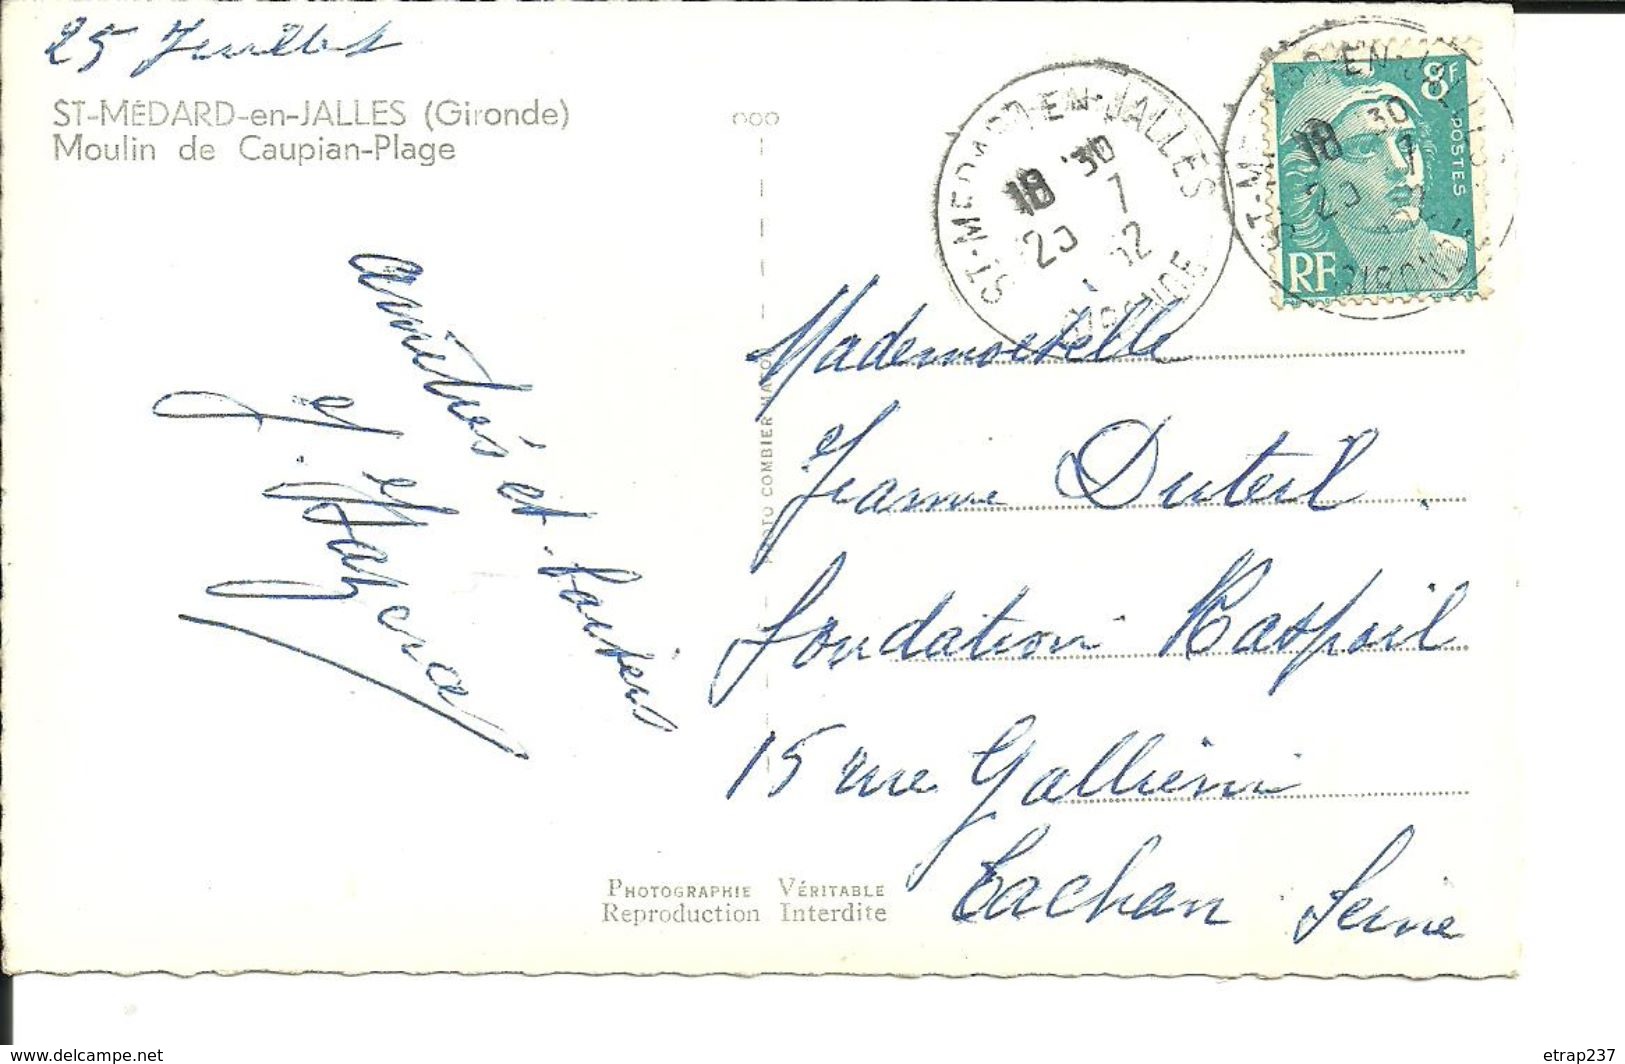 25 Juillet
ST-MÉDARD-en-JALLES (Gironde)
Moulin de Caupian-Plage
amitiés et baisers
ST-MEDARD-EN-JALLES
18 30
25 7
52
GIRONDE
8F
POSTES
RF
ST-MEDARD-EN-JALLES
18 30
GIRONDE
PHOTO COMBIER MACON
Mademoiselle
Jeanne Duteil
fondation Raspail
15 rue Galliéni
Cachan Seine
PHOTOGRAPHIE VÉRITABLE
Reproduction Interdite
www.delcampe.net
etrap237